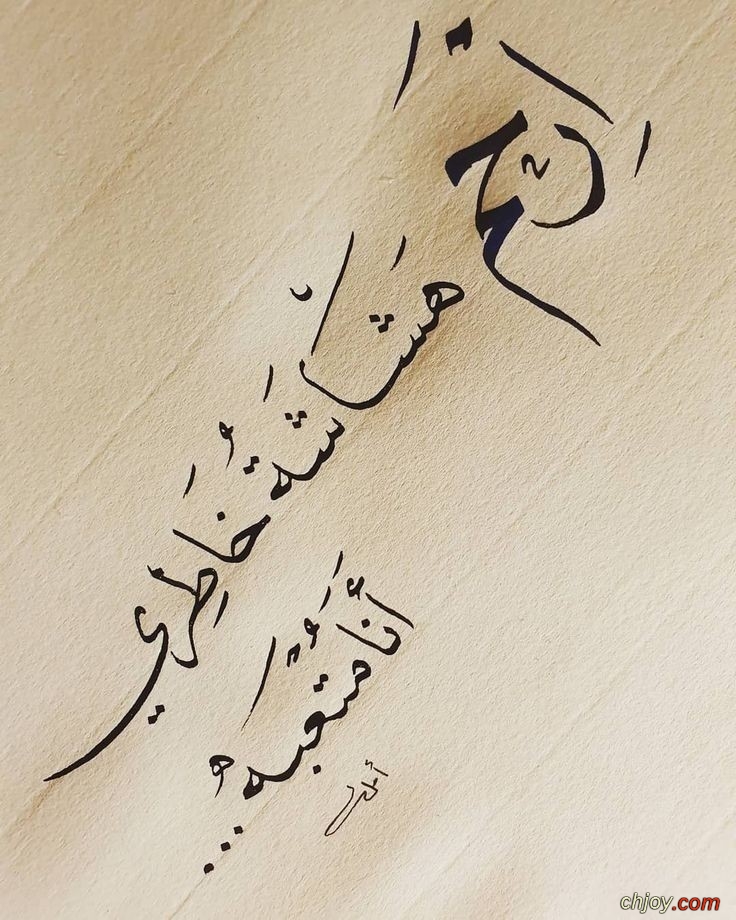 اِرحم
هَشاشَة خَاطِري
أنا مُتْعَبَة...
chjoy.com